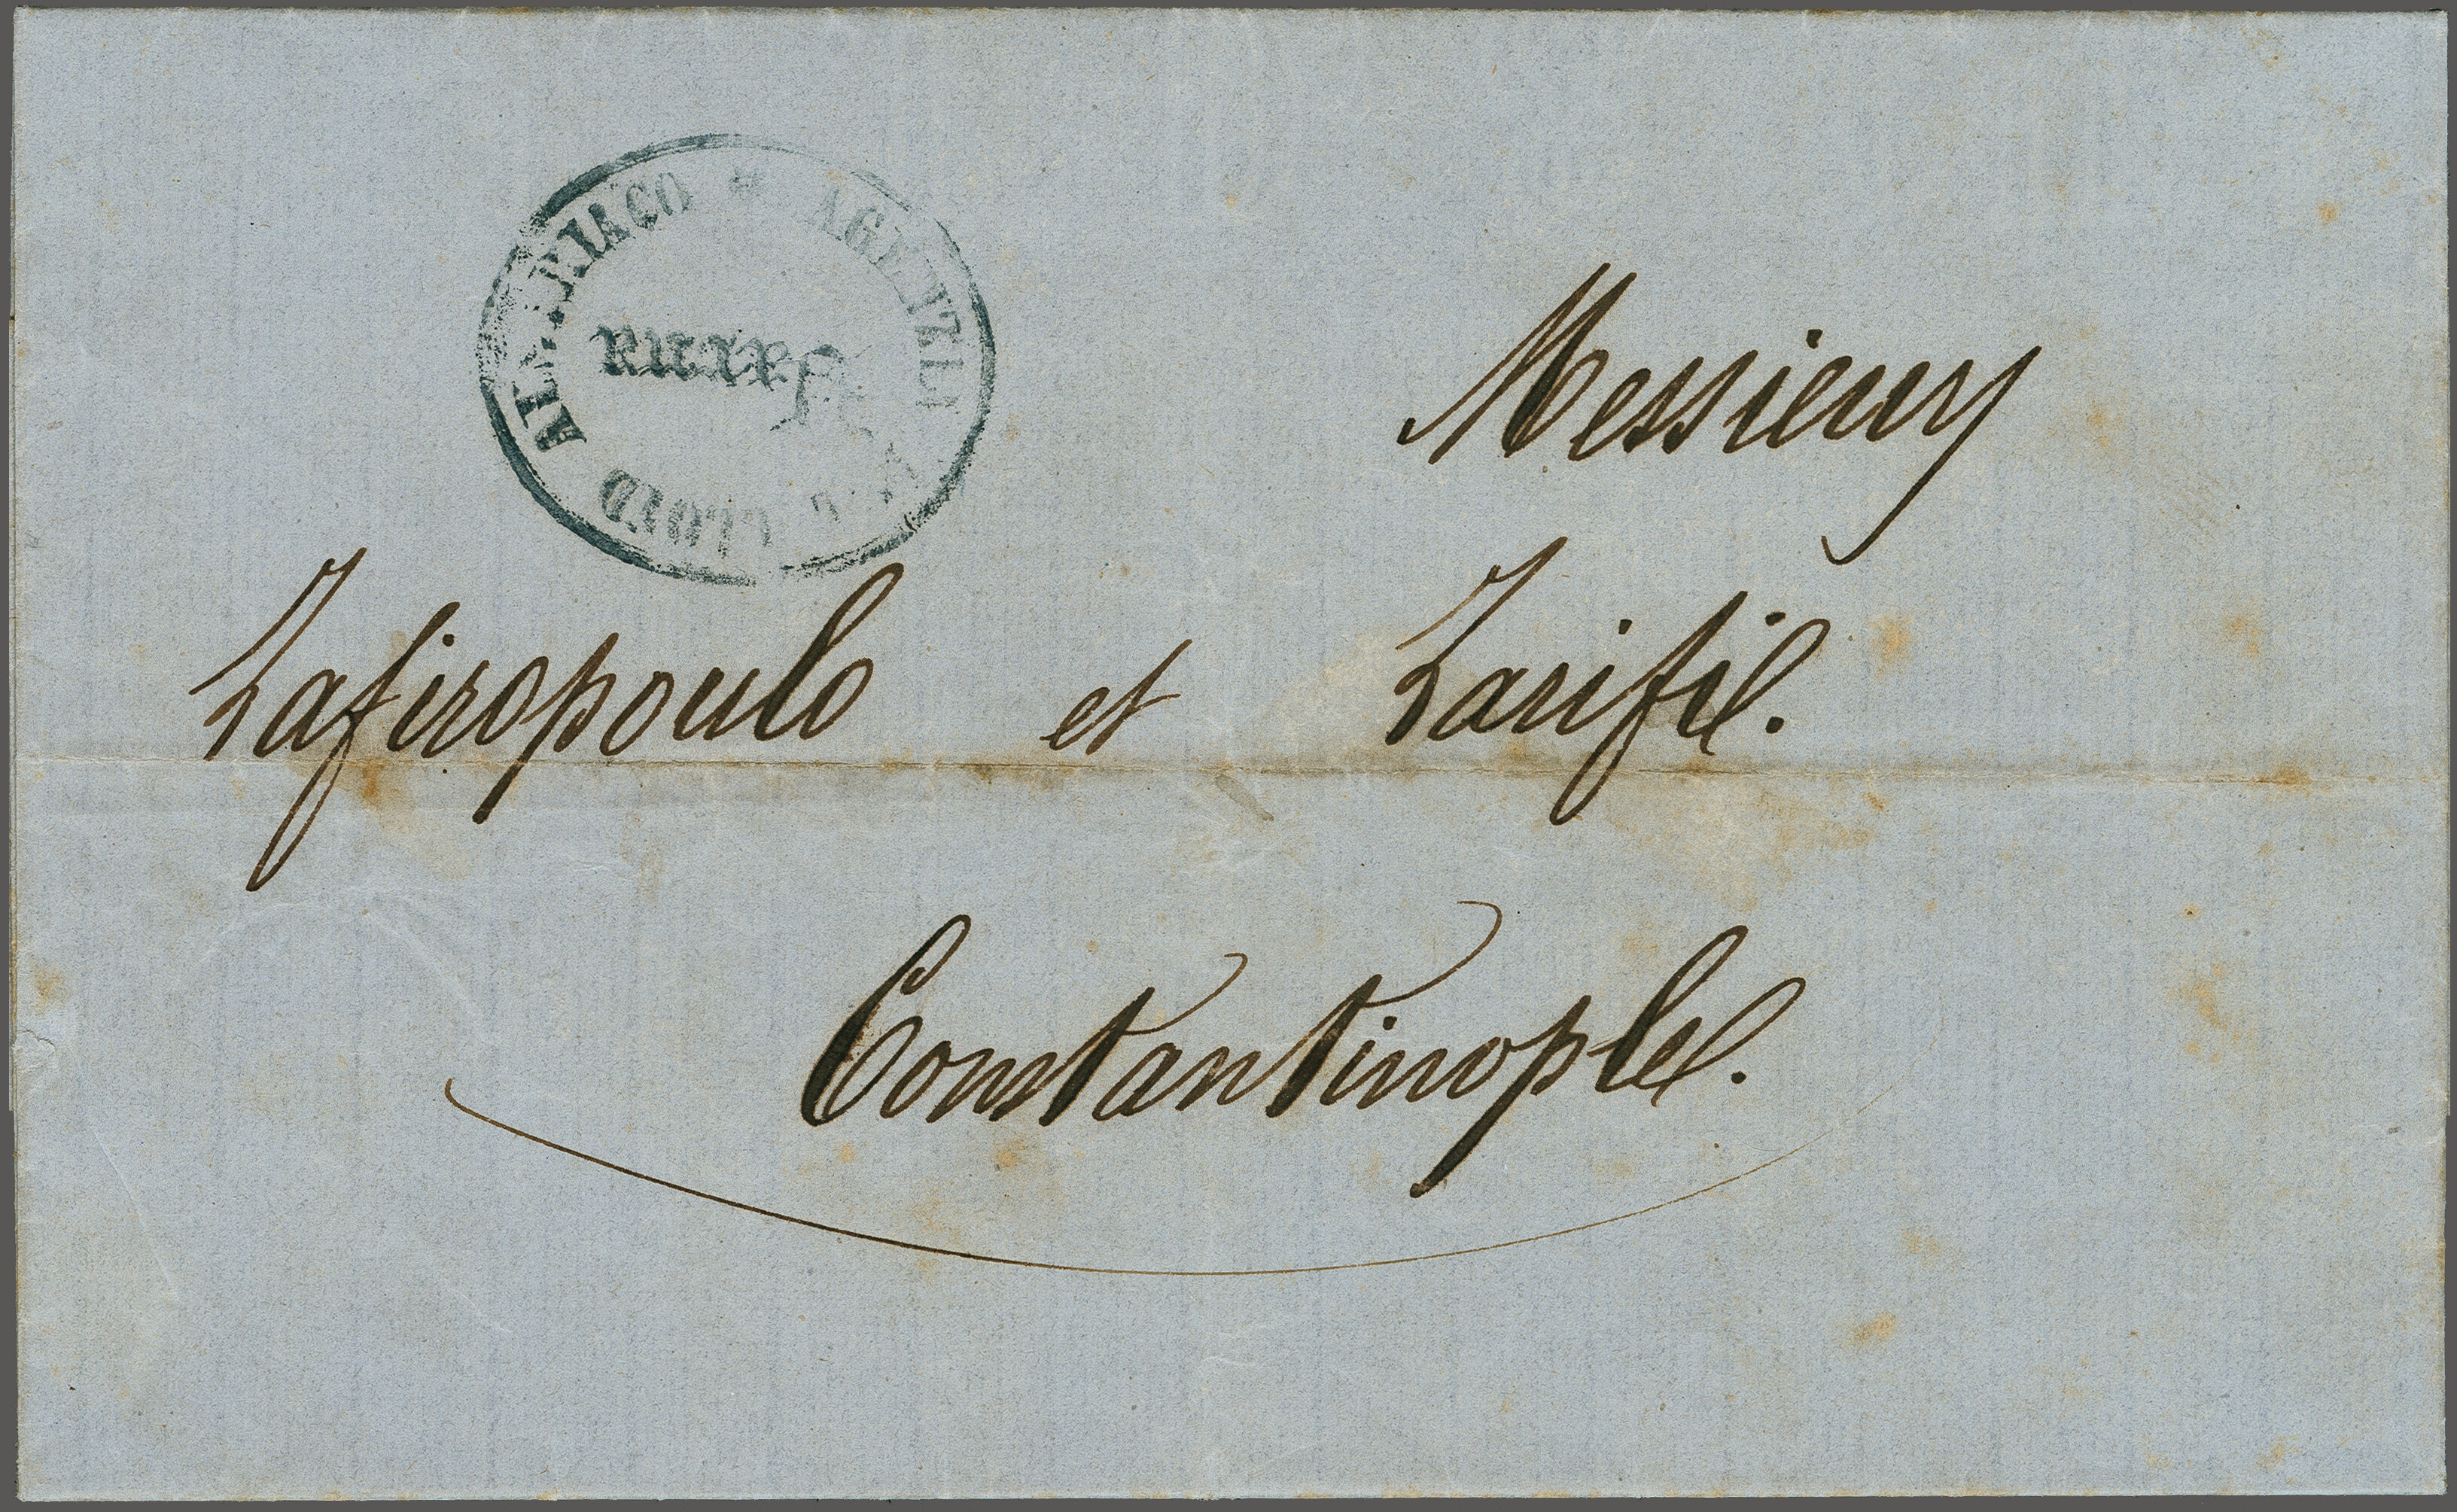 AGENZIA DEL LLOYD AUSTRIACO
Messieurs
Zafiropoulo et Zarifi.
Constantinople.